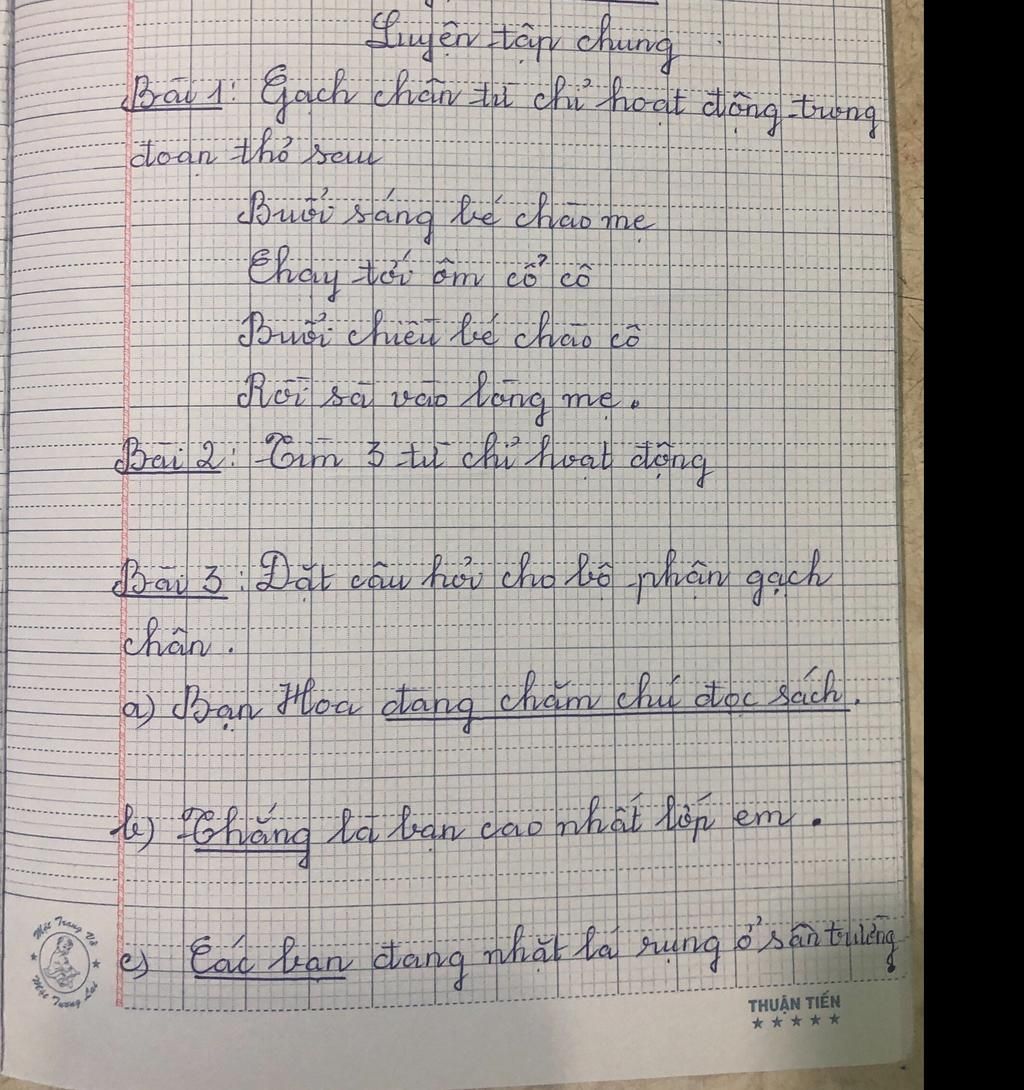 Luyện tập chung
Bài 1: Gạch chân từ chỉ hoạt động trong
đoạn thơ sau
Buổi sáng bé chào mẹ
Chạy tới ôm cổ cô
Buổi chiều bé chào cô
Rồi sà vào lòng mẹ.
Bài 2: Tìm 3 từ chỉ hoạt động
Bài 3: Đặt câu hỏi cho bộ phận gạch
chân.
a) Bạn Hoa đang chăm chú đọc sách.
b) Thắng là bạn cao nhất lớp em.
c) Các bạn đang nhặt lá rụng ở sân trường
Mặc Trang Vở
Mặc Tương Lai
THUẬN TIẾN